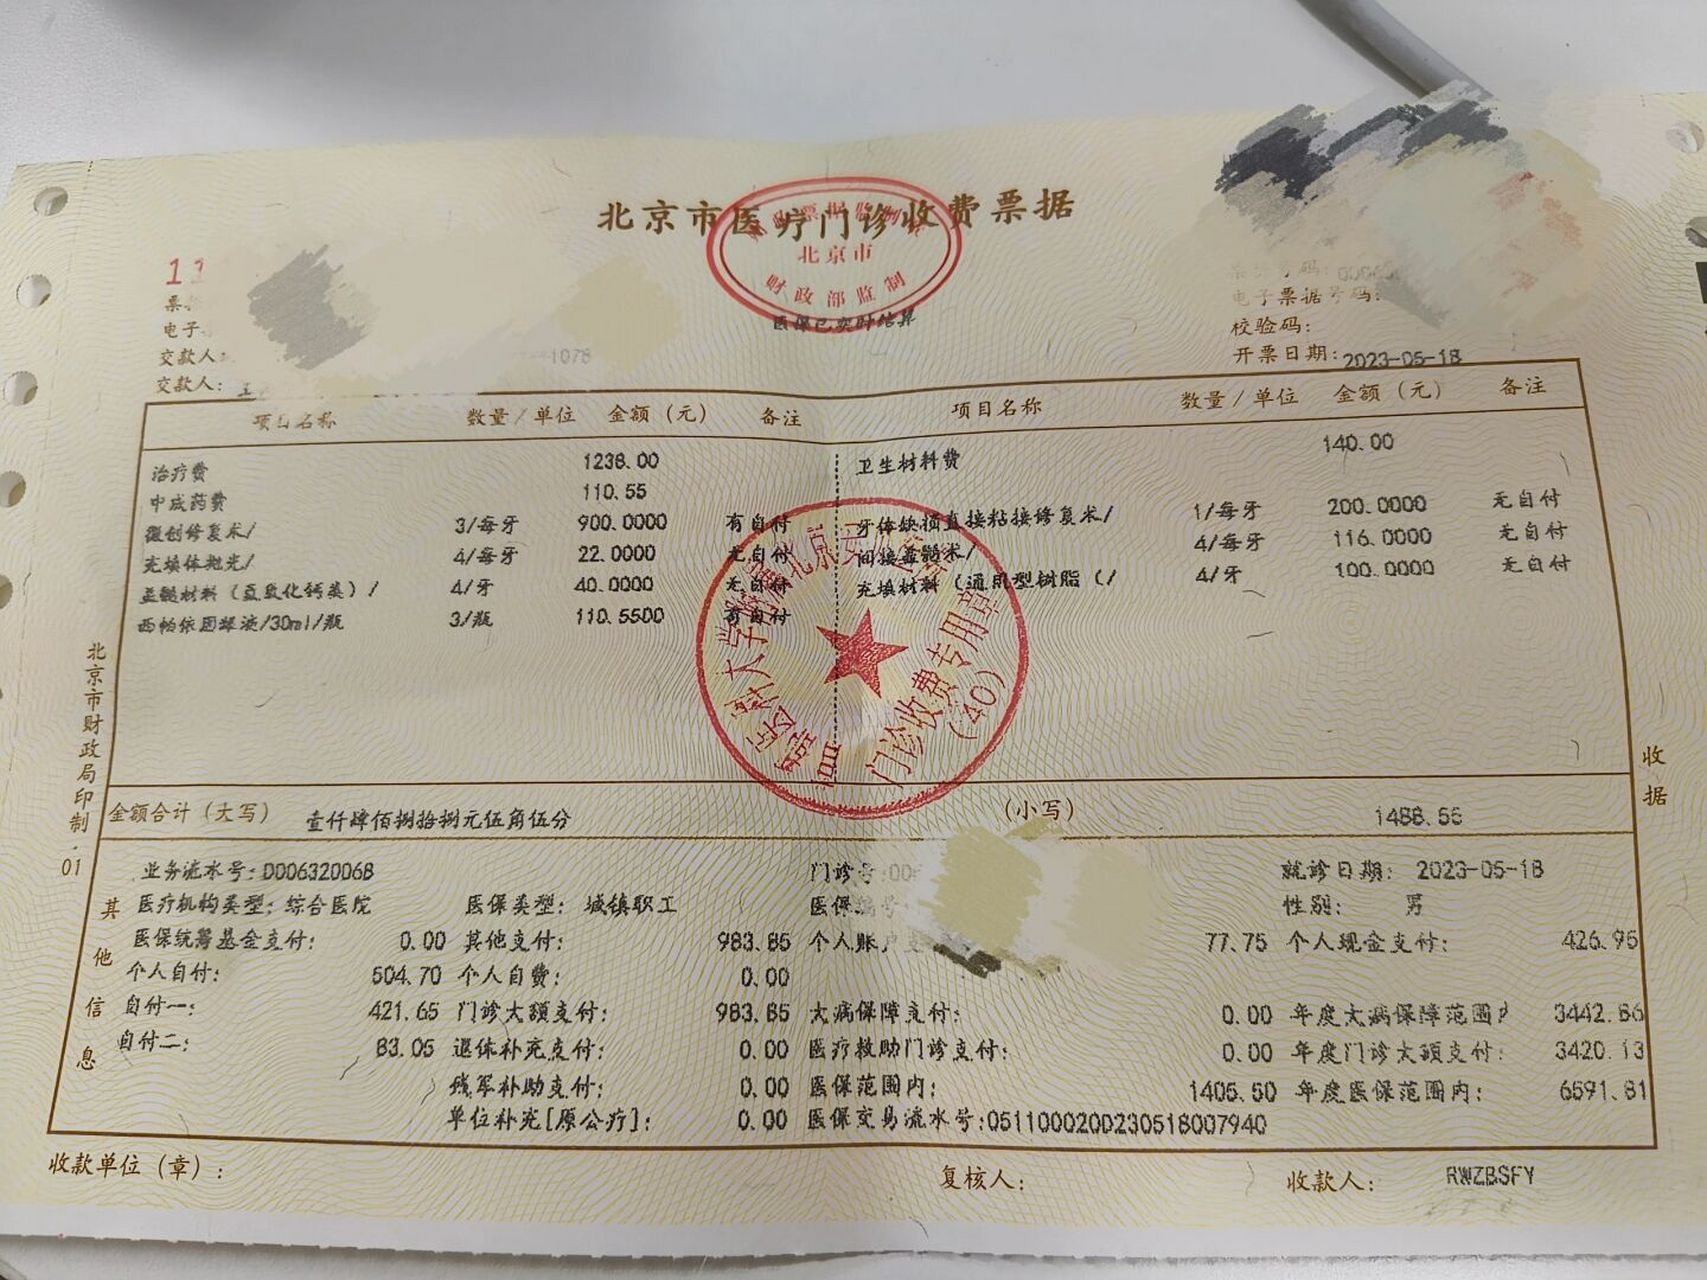 北京市医疗门诊收费票据
北京市
财政部监制
医保已实时结算
11
票
电子
交款人
1078
交款人:
电子票据号码:
校验码:
开票日期: 2023-05-18
项目名称 数量/单位 金额（元） 备注 项目名称 数量/单位 金额（元） 备注
治疗费 1238.00 卫生材料费 140.00
中成药费 110.55
微创修复术/ 3/每牙 900.0000 有自付 牙体缺损直接粘接修复术/ 1/每牙 200.0000 无自付
充填体抛光/ 4/每牙 22.0000 无自付 间接盖髓术/ 4/每牙 116.0000 无自付
盖髓材料（氢氧化钙类）/ 4/牙 40.0000 无自付 充填材料（通用型树脂（/ 4/牙 100.0000 无自付
西帕依固龈液/30ml/瓶 3/瓶 110.5500 有自付
首都医科大学附属北京安贞医院
门诊收费专用章
（40）
北京市财政局印制.01
收据
金额合计（大写） 壹仟肆佰捌拾捌元伍角伍分 （小写） 1488.55
其他信息
业务流水号:D006320068 门诊号:00 就诊日期: 2023-05-18
医疗机构类型: 综合医院 医保类型: 城镇职工 医保编号 性别: 男
医保统筹基金支付: 0.00 其他支付: 983.85 个人账户支 77.75 个人现金支付: 426.95
个人自付: 504.70 个人自费: 0.00
自付一: 421.65 门诊大额支付: 983.85 大病保障支付: 0.00 年度大病保障范围内 3442.86
自付二: 83.05 退休补充支付: 0.00 医疗救助门诊支付: 0.00 年度门诊大额支付: 3420.13
残军补助支付: 0.00 医保范围内: 1405.50 年度医保范围内: 6591.81
单位补充[原公疗]: 0.00 医保交易流水号:051100020D230518007940
收款单位（章）: 复核人: 收款人: RWZBSFY